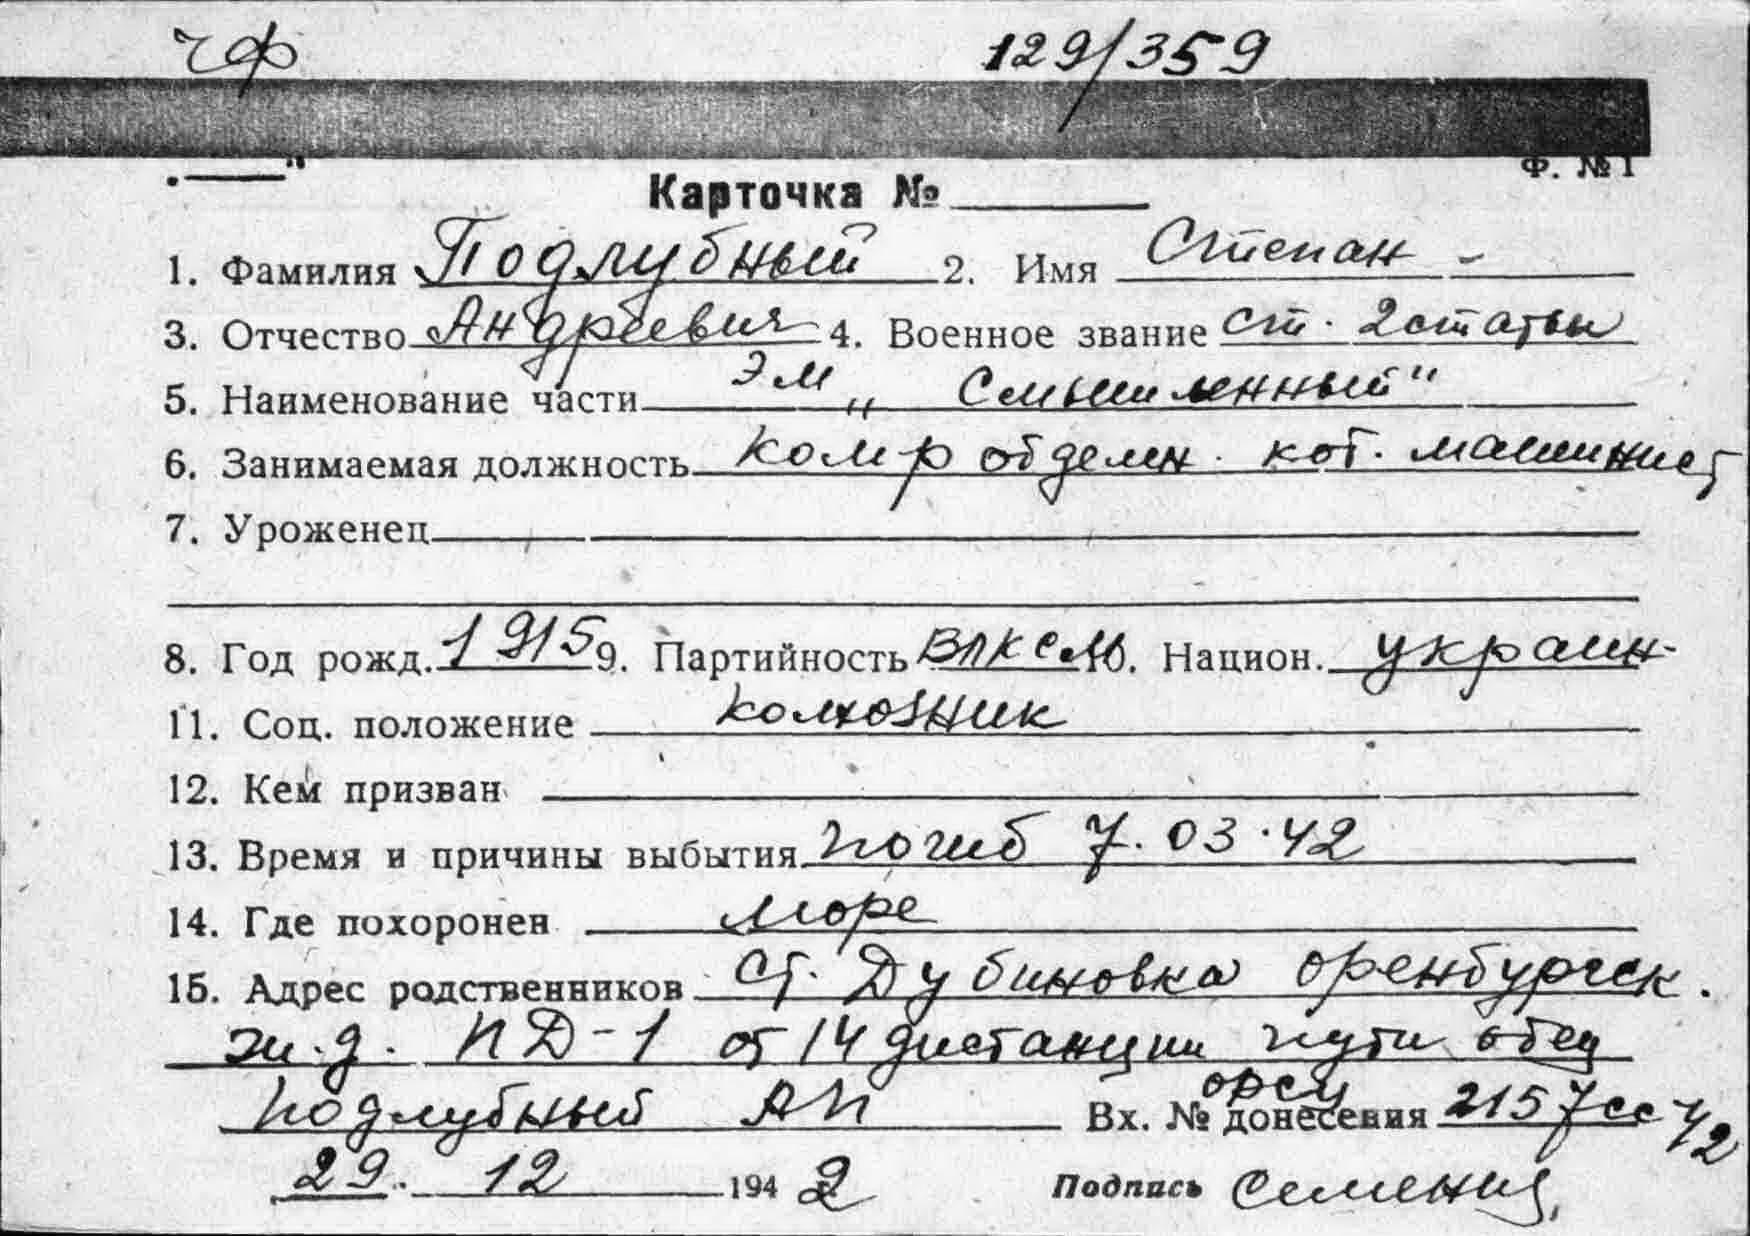 ЧФ 129/359
Ф. № 1
Карточка №
1. Фамилия Подлубный 2. Имя Степан
3. Отчество Андреевич 4. Военное звание ст. 2 статьи
5. Наименование части ЭМ „Смышленный"
6. Занимаемая должность ком-р отделен. кот. машинист
7. Уроженец
8. Год рожд. 1915 9. Партийность ВЛКСМ 10. Национ. украин-
11. Соц. положение колхозник
12. Кем призван
13. Время и причины выбытия погиб 7.03.42
14. Где похоронен море
15. Адрес родственников ст. Дубиновка оренбургск.
ж.д. ПД-1 от 14 дистанции пути отец
Подлубный АП Вх. № донесения орсу 2157сс 42
29. 12 1942 Подпись